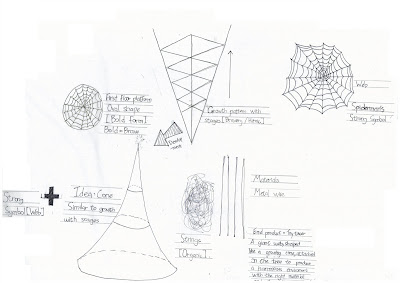 And floor platform
Oval shape
[Bold form]
Bold = Brave
Growth pattern with
stages
Web
Spiderwebs
Strong Symbol
Strong
Symbol [Web]
Idea: Cone
Similar to growth
with stages
Strings
[Organic]
Materials
Metal wire
End product = Toy Tower
A giant web shaped
like a growing tree, attached
in the tree to produce
a harmonious environment
with the right material